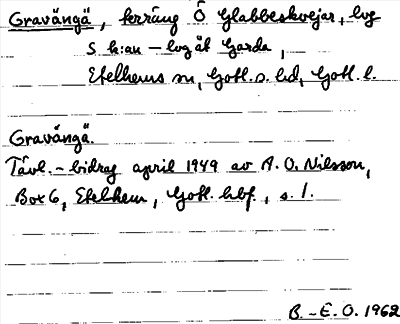 Gravängä, terräng Ö Glabbeskvejar, lvg
S k:an – lvg åt Garda,
Etelhems sn, Gotl. s. hd, Gotl. l.
Gravängä.
Tävl. – bidrag april 1949 av A. O. Nilsson,
Box 6, Etelhem, Gotl. hbf., s. 1.
B. – E. O. 1962